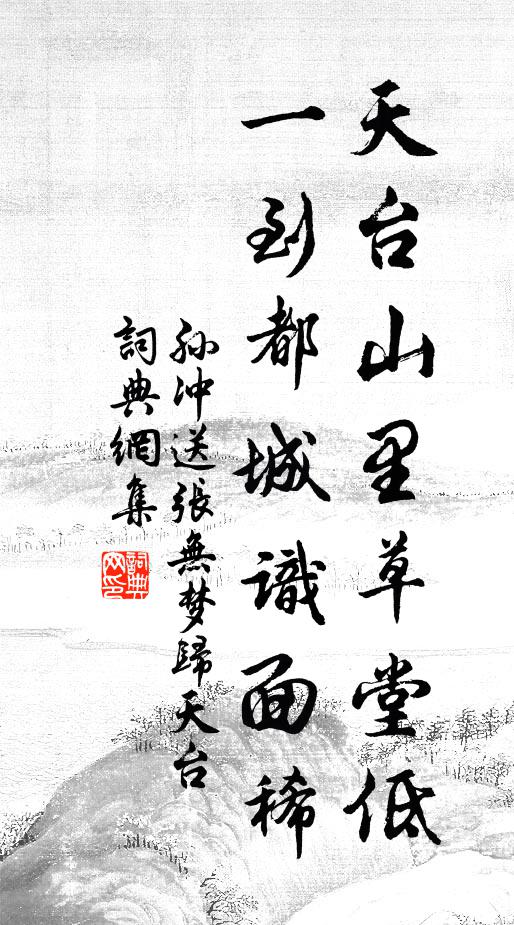 天台山里草堂低
一到都城識面稀
孙冲送張無梦歸天台
詞典網集
詞典
网印